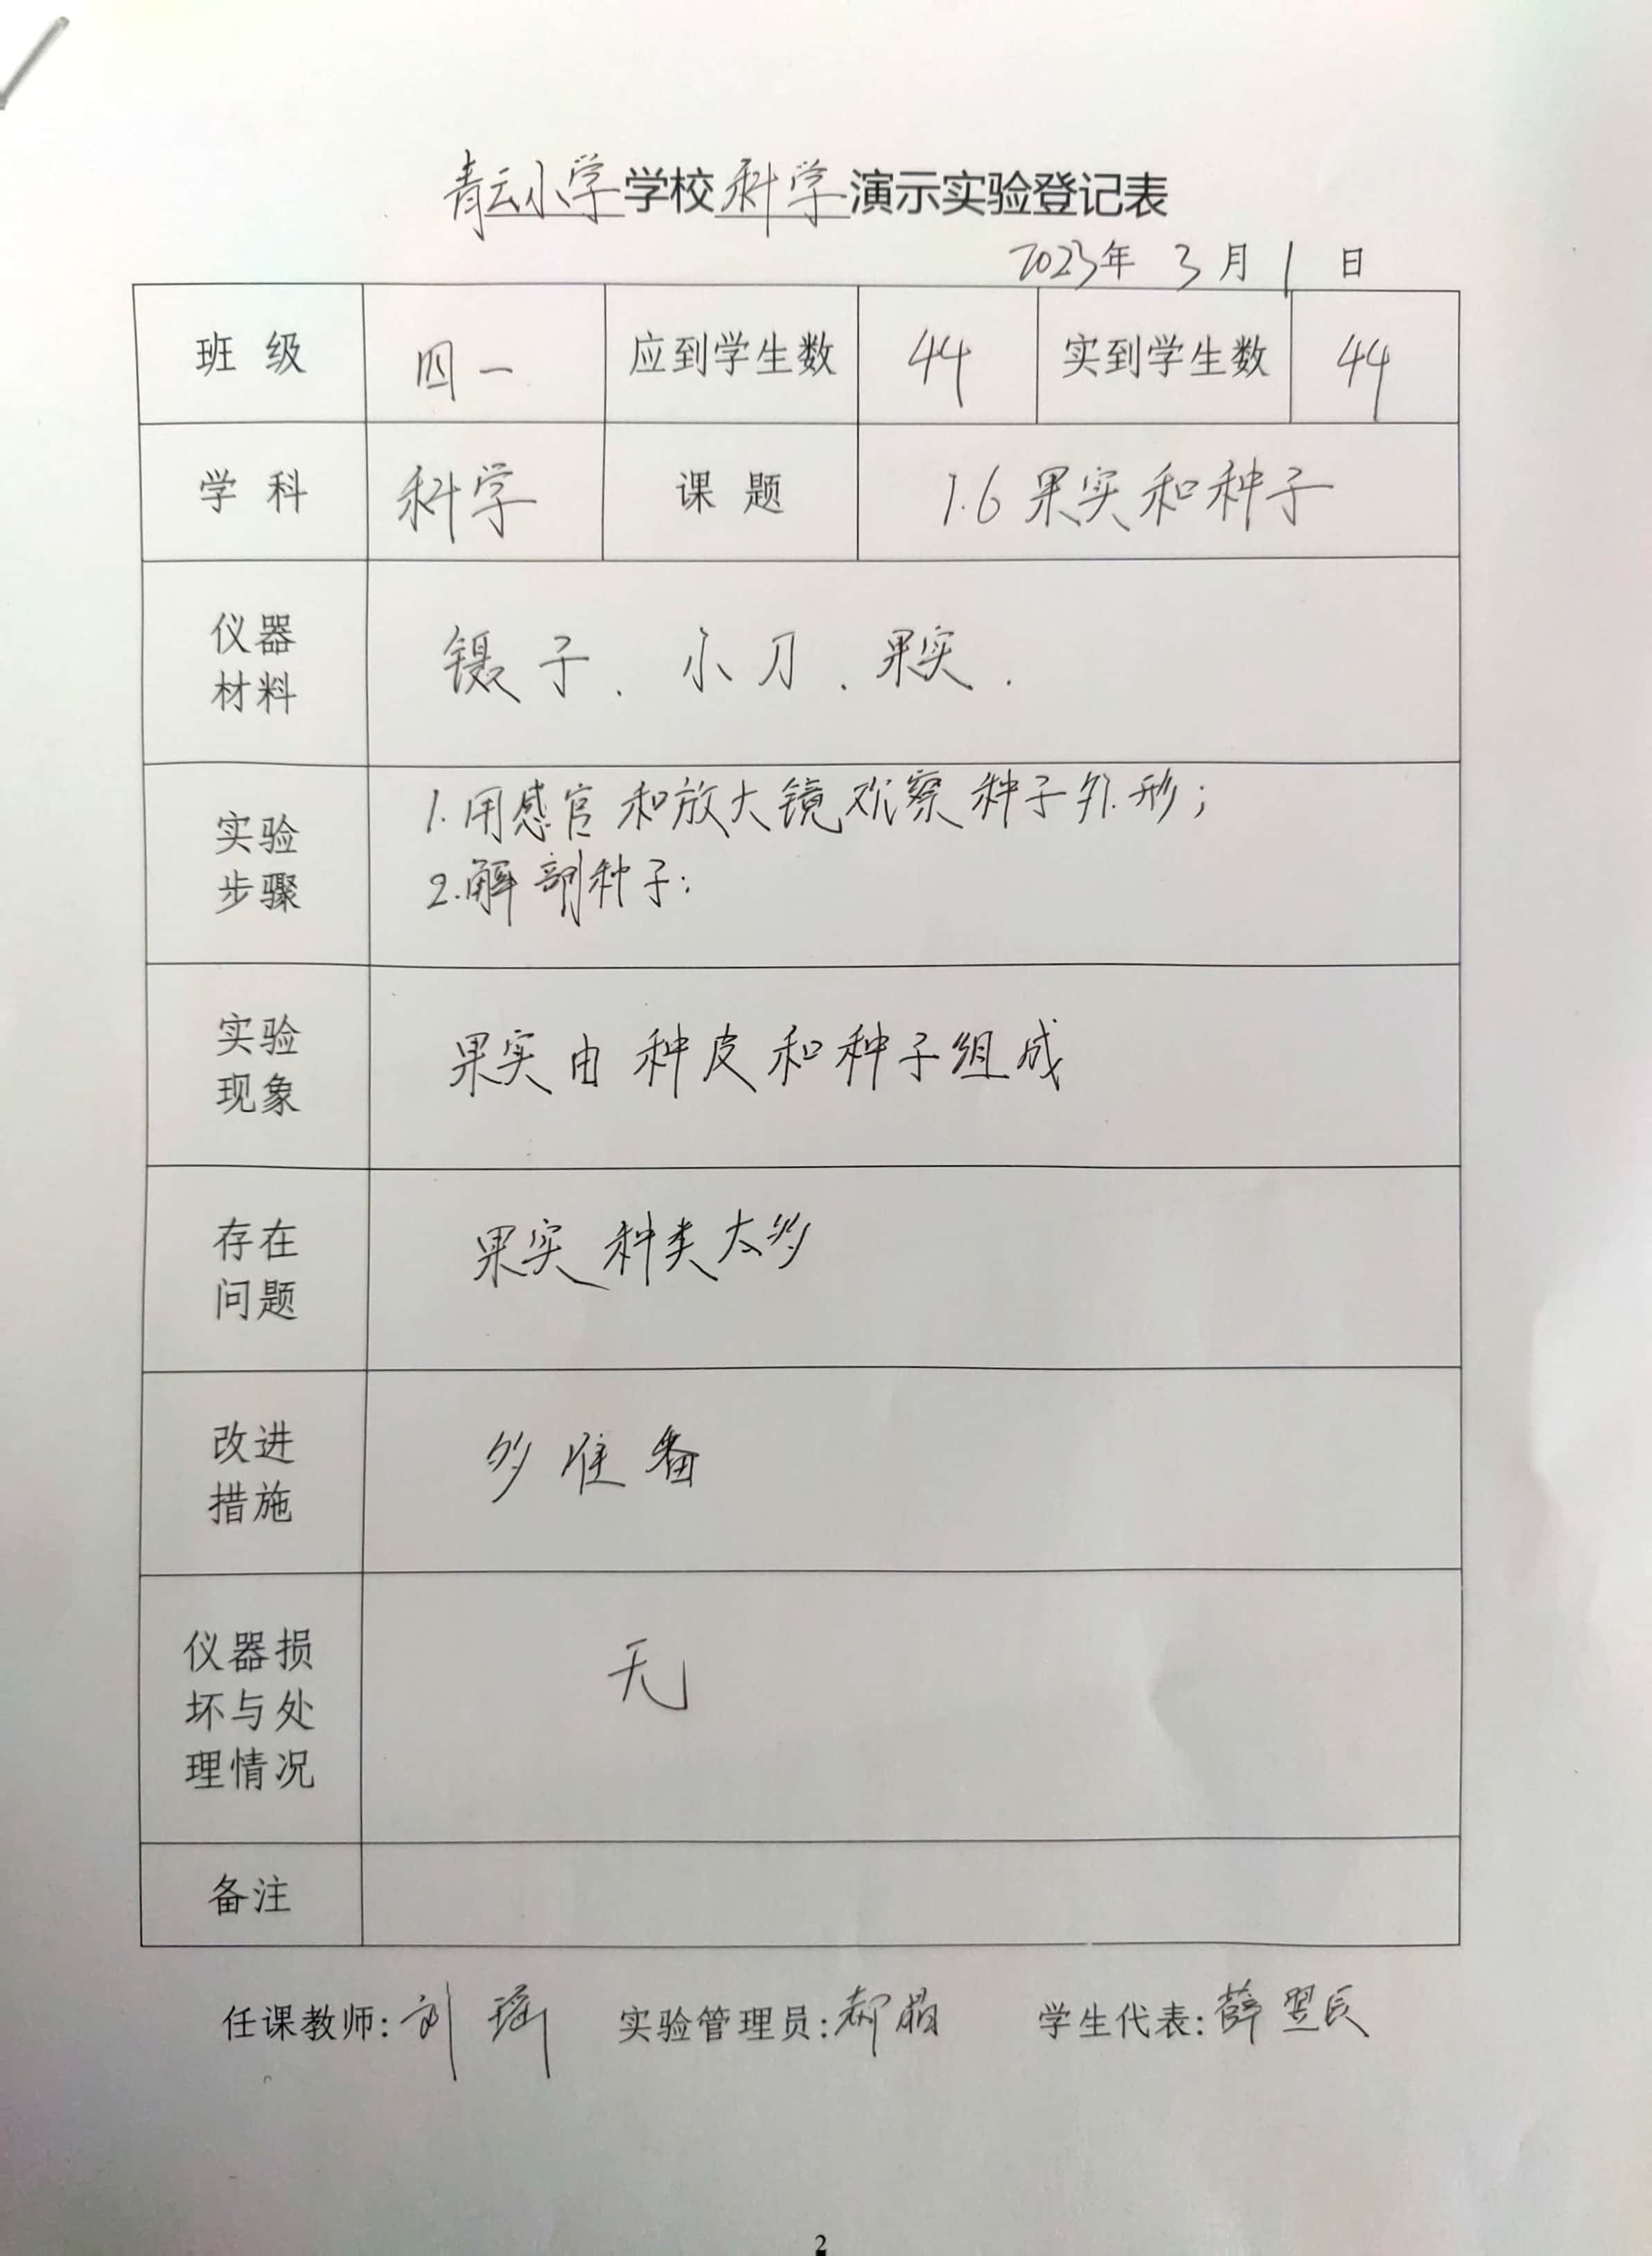 青云小学学校科学演示实验登记表
2023年 3月 1 日
班 级 四一 应到学生数 44 实到学生数 44
学 科 科学 课 题 1.6 果实和种子
仪器
材料
镊子、小刀、果实.
实验
步骤
1.用感官和放大镜观察种子外形;
2.解剖种子:
实验
现象
果实由种皮和种子组成
存在
问题
果实种类太多
改进
措施
多准备
仪器损
坏与处
理情况
无
备注
任课教师:刘瑶 实验管理员:郝 学生代表:薛翌辰
2